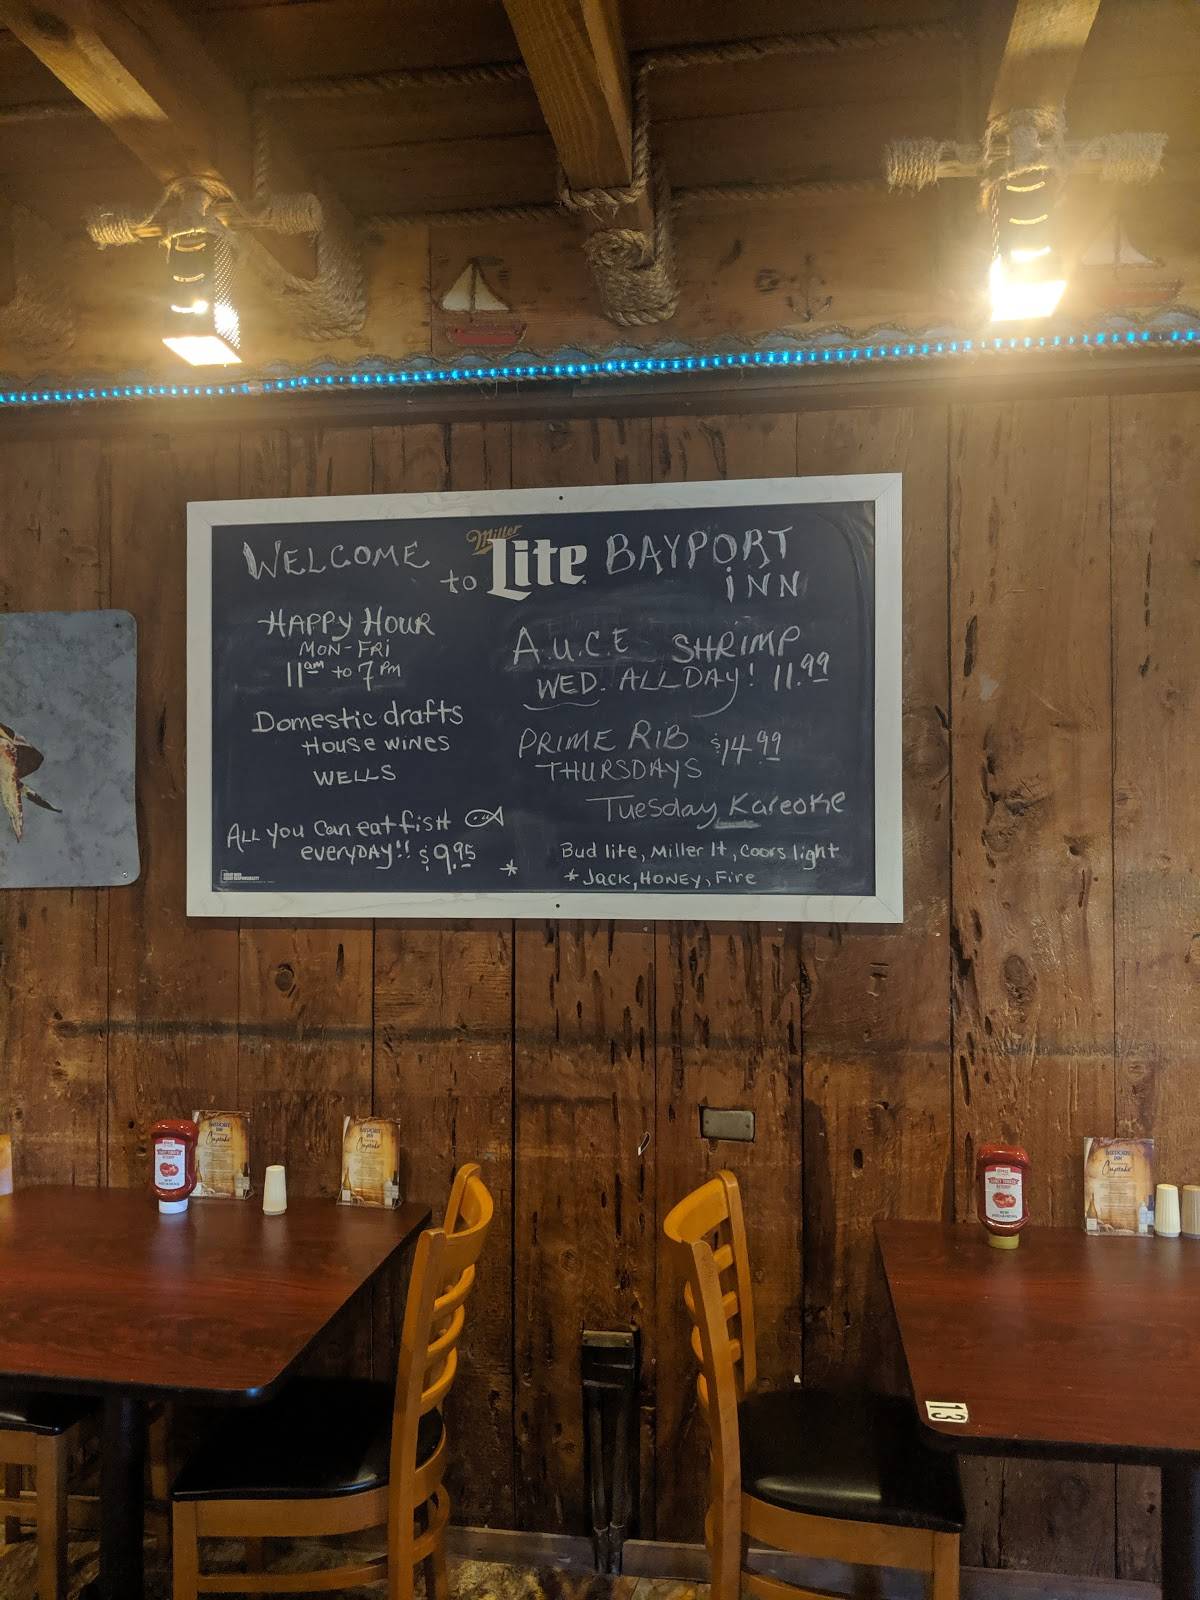 WELCOME to Miller Lite BAYPORT INN
HAPPY HOUR
MON-FRI
11am to 7pm
Domestic drafts
House wines
WELLS
ALL you can eat fish
everyday!! $9.95
A.U.C.E SHRIMP
WED. ALL DAY! 11.99
PRIME RIB $14.99
THURSDAYS
Tuesday Kareoke
Bud lite, Miller lt, Coors light
* * Jack, HONEY, Fire
BAYPORT INN
Cupcake
BAYPORT INN
Cupcake
BAYPORT INN
Cupcake
13